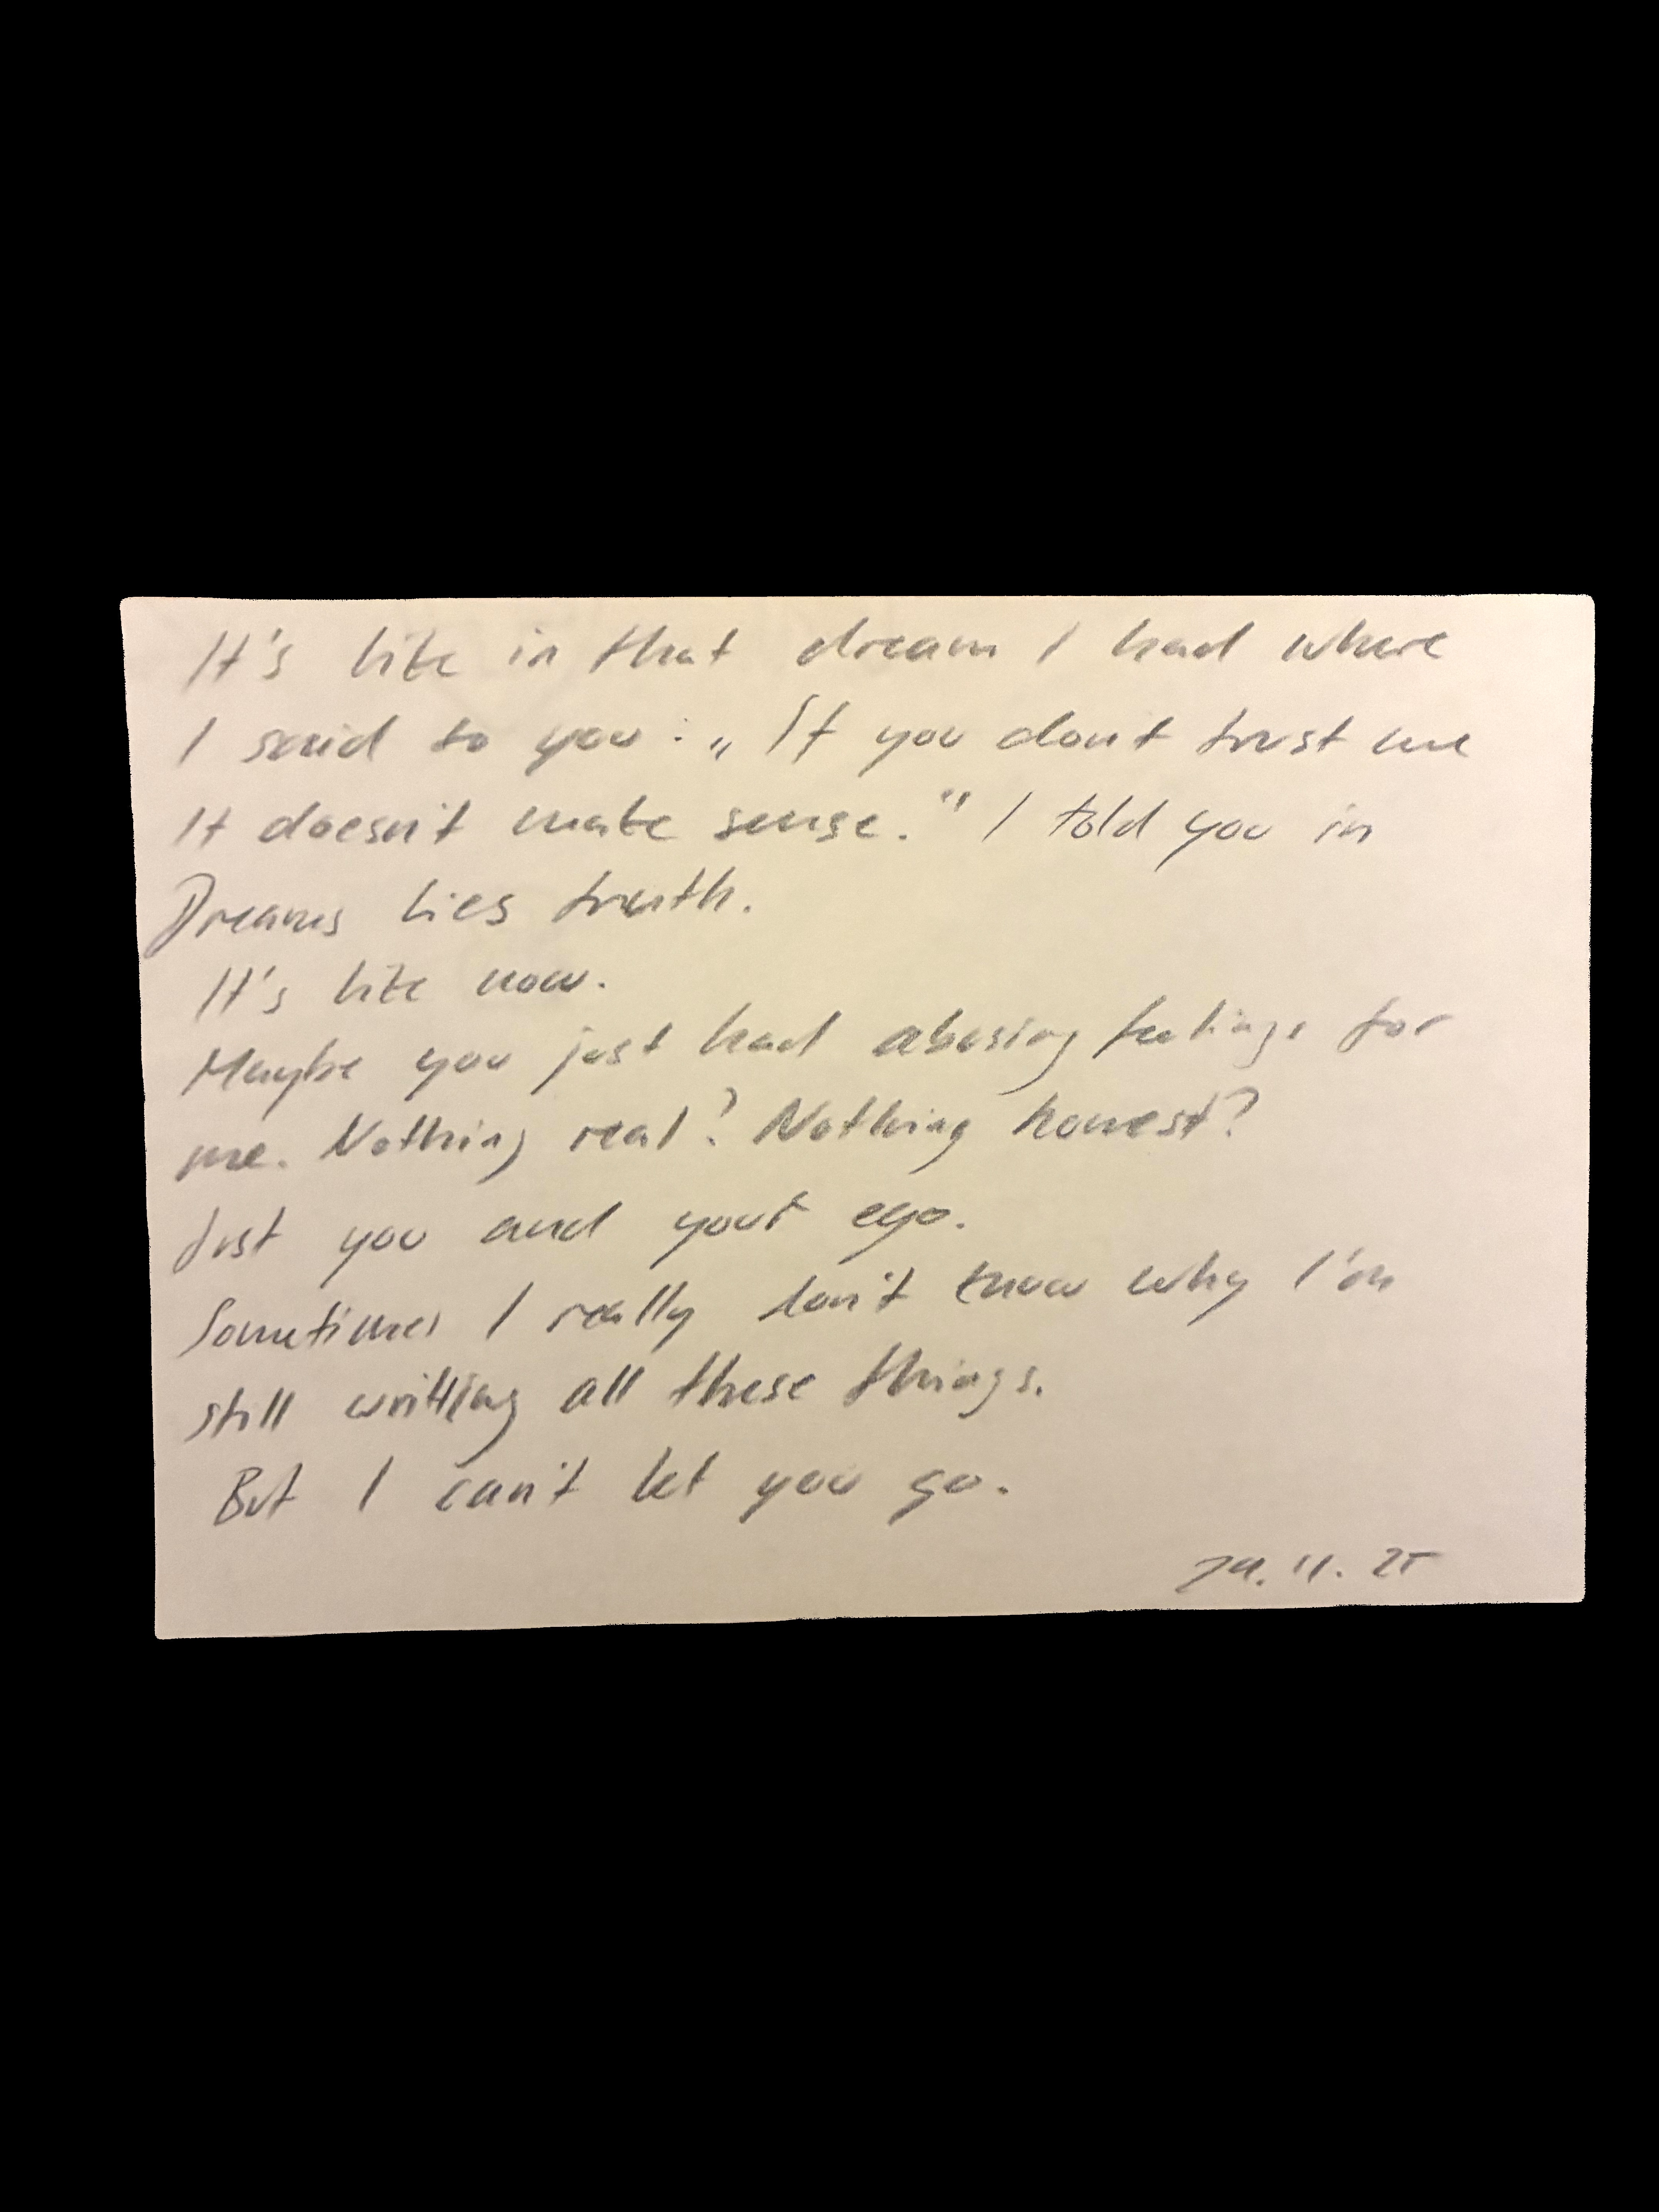 It's like in that dream I had where
I said to you: „If you don't trust me
It doesn't make sense." I told you in
Dreams lies truth.
It's like now.
Maybe you just had abusing feelings for
me. Nothing real? Nothing honest?
Just you and your ego.
Sometimes I really don't know why I'm
still writting all these things.
But I can't let you go.
11. 25